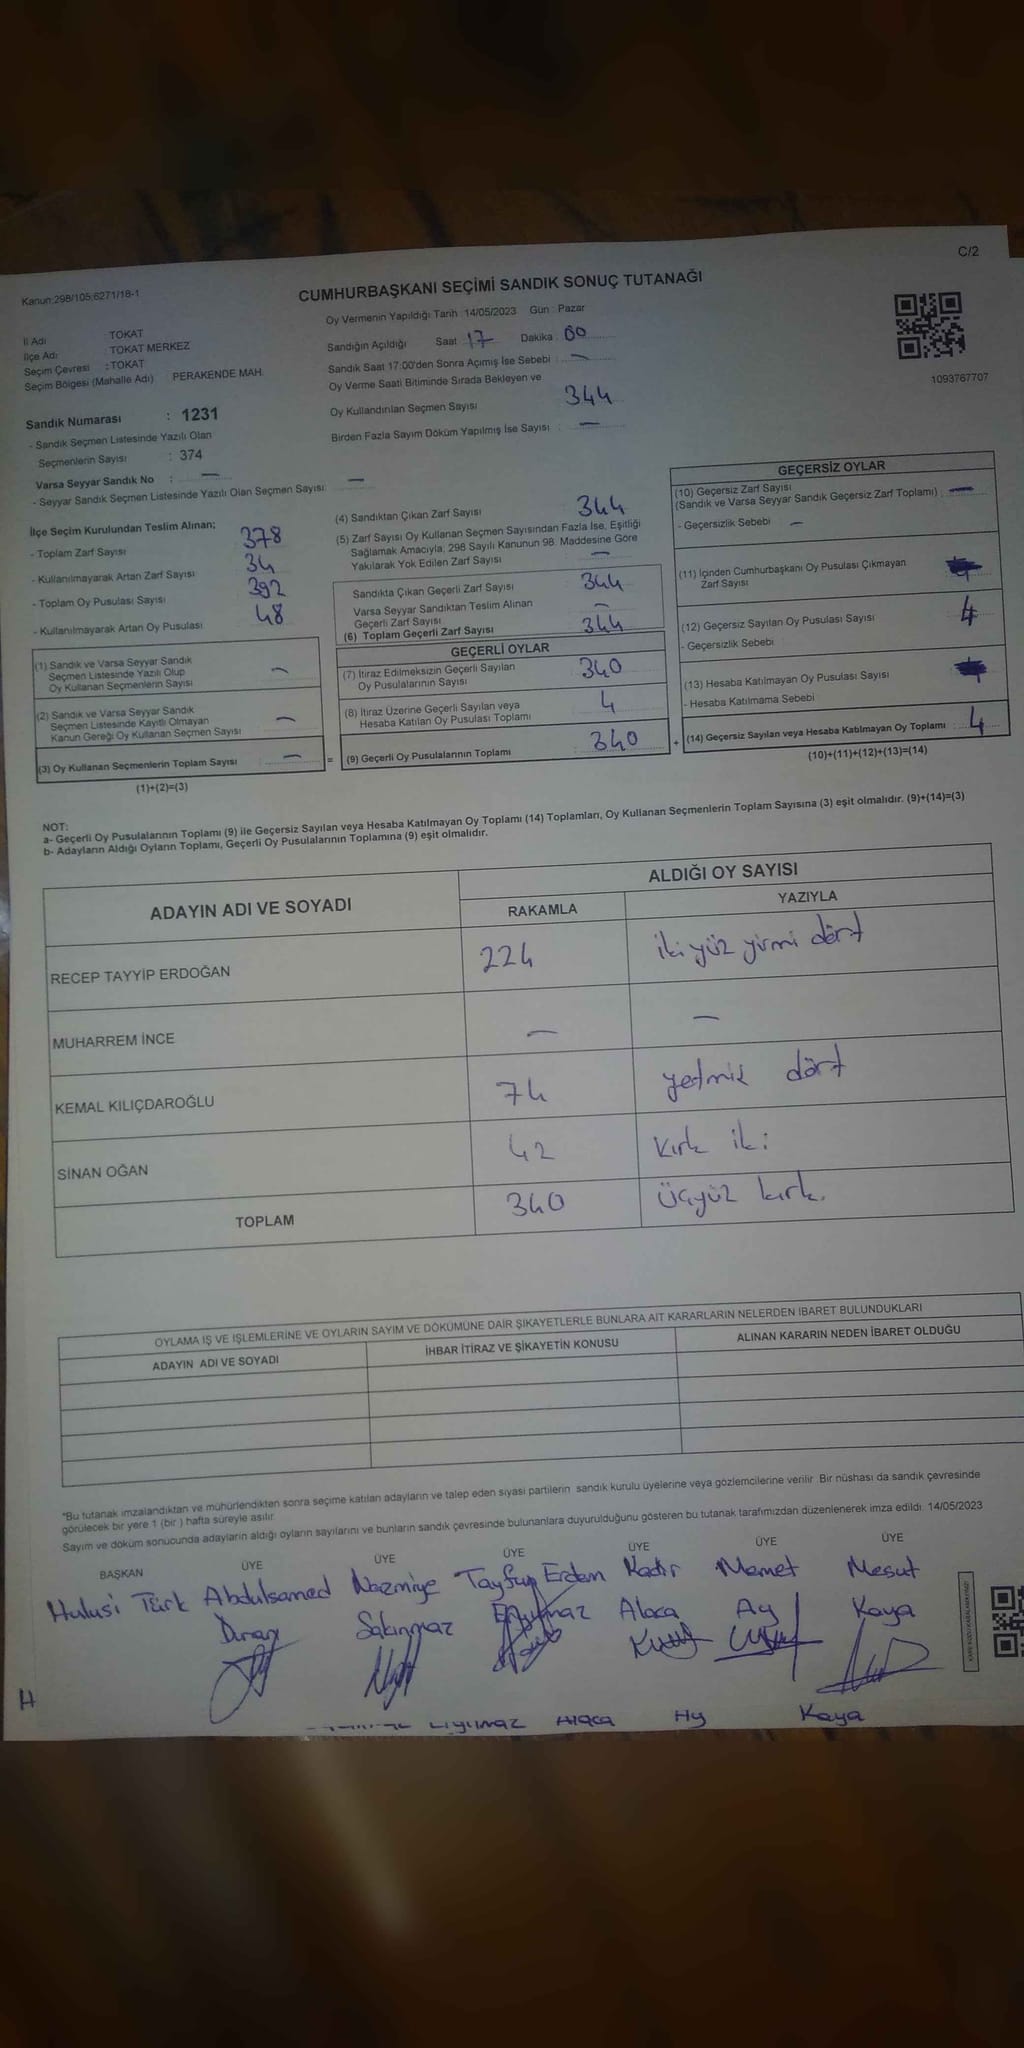 C/2
Kanun;298/105;6271/18-1
CUMHURBAŞKANI SEÇİMİ SANDIK SONUÇ TUTANAĞI
İl Adı : TOKAT
İlçe Adı : TOKAT MERKEZ
Seçim Çevresi : TOKAT
Seçim Bölgesi (Mahalle Adı) PERAKENDE MAH.
Oy Vermenin Yapıldığı Tarih : 14/05/2023 Gün : Pazar
Sandığın Açıldığı Saat 17 Dakika : 00
Sandık Saat 17:00'den Sonra Açımış İse Sebebi : —
Oy Verme Saati Bitiminde Sırada Bekleyen ve
Oy Kullandırılan Seçmen Sayısı 344
Birden Fazla Sayım Döküm Yapılmış İse Sayısı : —
1093767707
Sandık Numarası : 1231
- Sandık Seçmen Listesinde Yazılı Olan
Seçmenlerin Sayısı : 374
Varsa Seyyar Sandık No : —
- Seyyar Sandık Seçmen Listesinde Yazılı Olan Seçmen Sayısı: —
İlçe Seçim Kurulundan Teslim Alınan;
- Toplam Zarf Sayısı 378
- Kullanılmayarak Artan Zarf Sayısı 34
- Toplam Oy Pusulası Sayısı 392
- Kullanılmayarak Artan Oy Pusulası 48
(1) Sandık ve Varsa Seyyar Sandık
Seçmen Listesinde Yazılı Olup
Oy Kullanan Seçmenlerin Sayısı —
(2) Sandık ve Varsa Seyyar Sandık
Seçmen Listesinde Kayıtlı Olmayan
Kanun Gereği Oy Kullanan Seçmen Sayısı —
(3) Oy Kullanan Seçmenlerin Toplam Sayısı : — =
(1)+(2)=(3)
(4) Sandıktan Çıkan Zarf Sayısı 344
(5) Zarf Sayısı Oy Kullanan Seçmen Sayısından Fazla İse, Eşitliği
Sağlamak Amacıyla, 298 Sayılı Kanunun 98. Maddesine Göre
Yakılarak Yok Edilen Zarf Sayısı —
Sandıkta Çıkan Geçerli Zarf Sayısı 344
Varsa Seyyar Sandıktan Teslim Alınan
Geçerli Zarf Sayısı —
(6) Toplam Geçerli Zarf Sayısı 344
GEÇERLİ OYLAR
(7) İtiraz Edilmeksizin Geçerli Sayılan
Oy Pusulalarının Sayısı 340
(8) İtiraz Üzerine Geçerli Sayılan veya
Hesaba Katılan Oy Pusulası Toplamı 4
(9) Geçerli Oy Pusulalarının Toplamı : 340 +
GEÇERSİZ OYLAR
(10) Geçersiz Zarf Sayısı
(Sandık ve Varsa Seyyar Sandık Geçersiz Zarf Toplamı) —
- Geçersizlik Sebebi —
(11) İçinden Cumhurbaşkanı Oy Pusulası Çıkmayan
Zarf Sayısı
(12) Geçersiz Sayılan Oy Pusulası Sayısı 4
- Geçersizlik Sebebi
(13) Hesaba Katılmayan Oy Pusulası Sayısı
- Hesaba Katılmama Sebebi
(14) Geçersiz Sayılan veya Hesaba Katılmayan Oy Toplamı 4
(10)+(11)+(12)+(13)=(14)
NOT:
a- Geçerli Oy Pusulalarının Toplamı (9) ile Geçersiz Sayılan veya Hesaba Katılmayan Oy Toplamı (14) Toplamları, Oy Kullanan Seçmenlerin Toplam Sayısına (3) eşit olmalıdır. (9)+(14)=(3)
b- Adayların Aldığı Oyların Toplamı, Geçerli Oy Pusulalarının Toplamına (9) eşit olmalıdır.
ADAYIN ADI VE SOYADI ALDIĞI OY SAYISI
RAKAMLA YAZIYLA
RECEP TAYYİP ERDOĞAN 224 iki yüz yirmi dört
MUHARREM İNCE — —
KEMAL KILIÇDAROĞLU 74 yetmiş dört
SİNAN OĞAN 42 Kırk iki
TOPLAM 340 Üçyüz kırk.
OYLAMA İŞ VE İŞLEMLERİNE VE OYLARIN SAYIM VE DÖKÜMÜNE DAİR ŞİKAYETLERLE BUNLARA AİT KARARLARIN NELERDEN İBARET BULUNDUKLARI
ADAYIN ADI VE SOYADI İHBAR İTİRAZ VE ŞİKAYETİN KONUSU ALINAN KARARIN NEDEN İBARET OLDUĞU
*Bu tutanak imzalandıktan ve mühürlendikten sonra seçime katılan adayların ve talep eden siyasi partilerin sandık kurulu üyelerine veya gözlemcilerine verilir. Bir nüshası da sandık çevresinde
görülecek bir yere 1 (bir) hafta süreyle asılır.
Sayım ve döküm sonucunda adayların aldığı oyların sayılarını ve bunların sandık çevresinde bulunanlara duyurulduğunu gösteren bu tutanak tarafımızdan düzenlenerek imza edildi. 14/05/2023
BAŞKAN ÜYE ÜYE ÜYE ÜYE ÜYE ÜYE
Hulusi Türk Abdulsamed Nazmiye Tayfun Erdem Kadir Memet Mesut
Duran Sakınmaz Alaca Ay Kaya
H
Alaca Ay Kaya